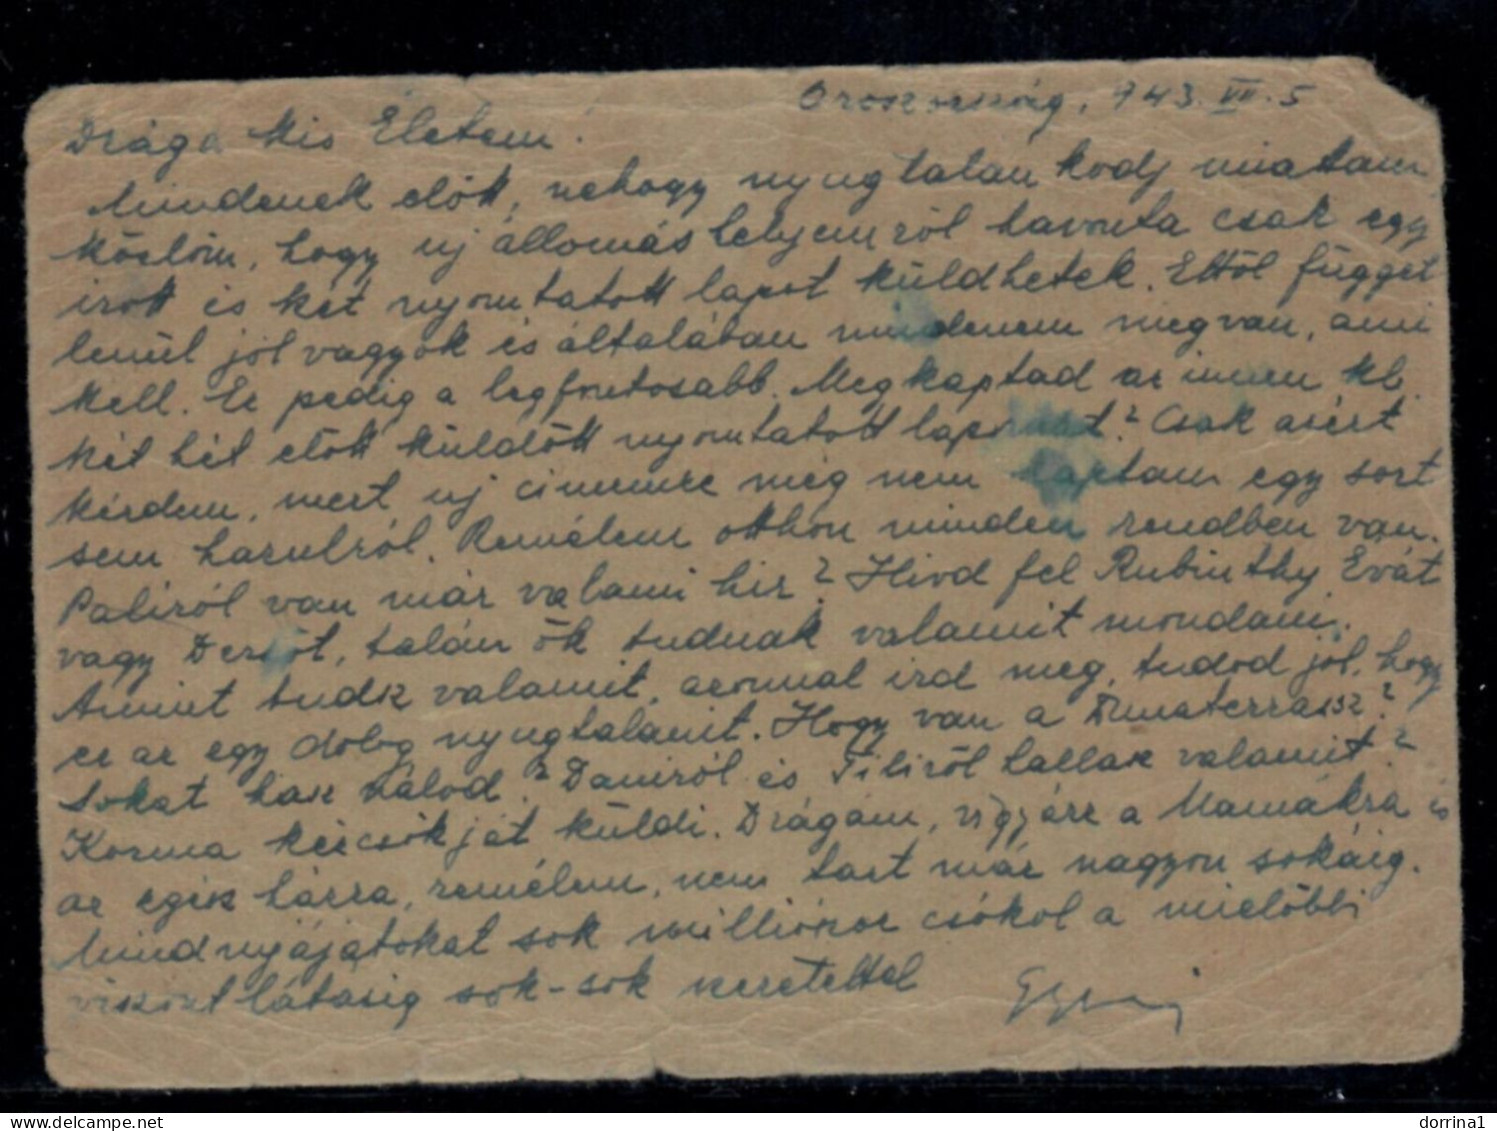 Oroszország, 943. VII. 5
Drága Kis Életem!
Mindenek előtt, nehogy nyugtalankodj miattam
közlöm, hogy uj állomáshelyemről havonta csak egy
irott és két nyomtatott lapot küldhetek. Ettől függet
lenül jól vagyok és általában mindenem megvan, ami
kell. Ez pedig a legfontosabb. Megkaptad az innen kb.
két hét előtt küldött nyomtatott laponat? Csak azért
kérdem, mert uj cimemre még nem kaptam egy sort
sem hazulról. Remélem otthon minden rendben van.
Paliról van már valami hir? Hivd fel Rubinthy Évát
vagy Dezsőt, talán ők tudnak valamit mondani.
Amint tudsz valamit, azonnal ird meg, tudod jól, hogy
ez az egy dolog nyugtalanit. Hogy van a Dunaterrasz?
Sokat hasz nálod? Daniról és Tibiről hallasz valamit?
Kozma kézcsókját küldi. Drágám, vigyázz a Mamákra is
az egész házra, remélem, nem tart már nagyon sokáig.
Mindnyájatokat sok milliószor csókol a mielőbbi
viszontlátásig sok-sok szeretettel